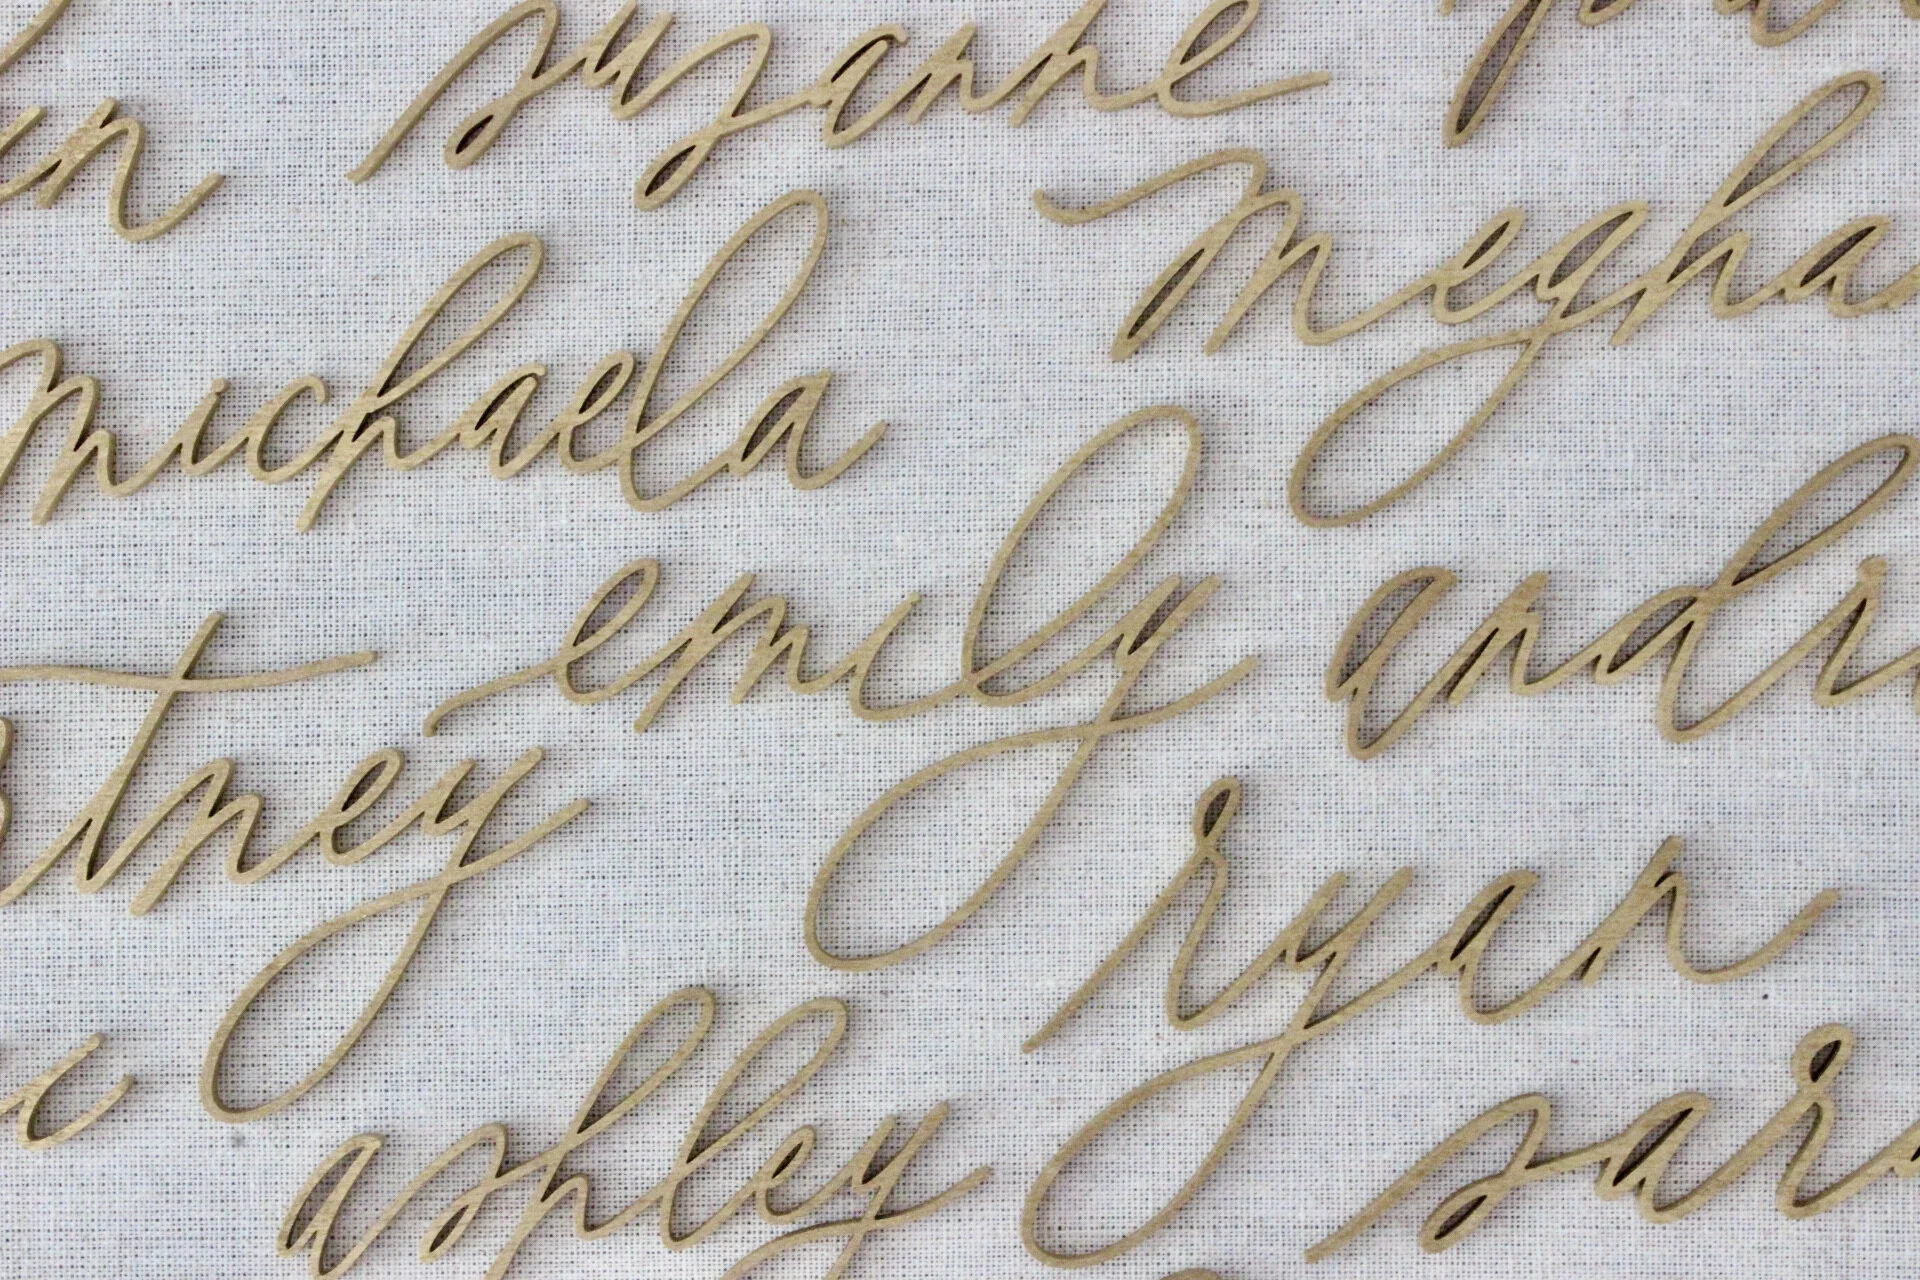 suzanne
megha
michaela
emily
andri
tney
ryan
ashley
sar